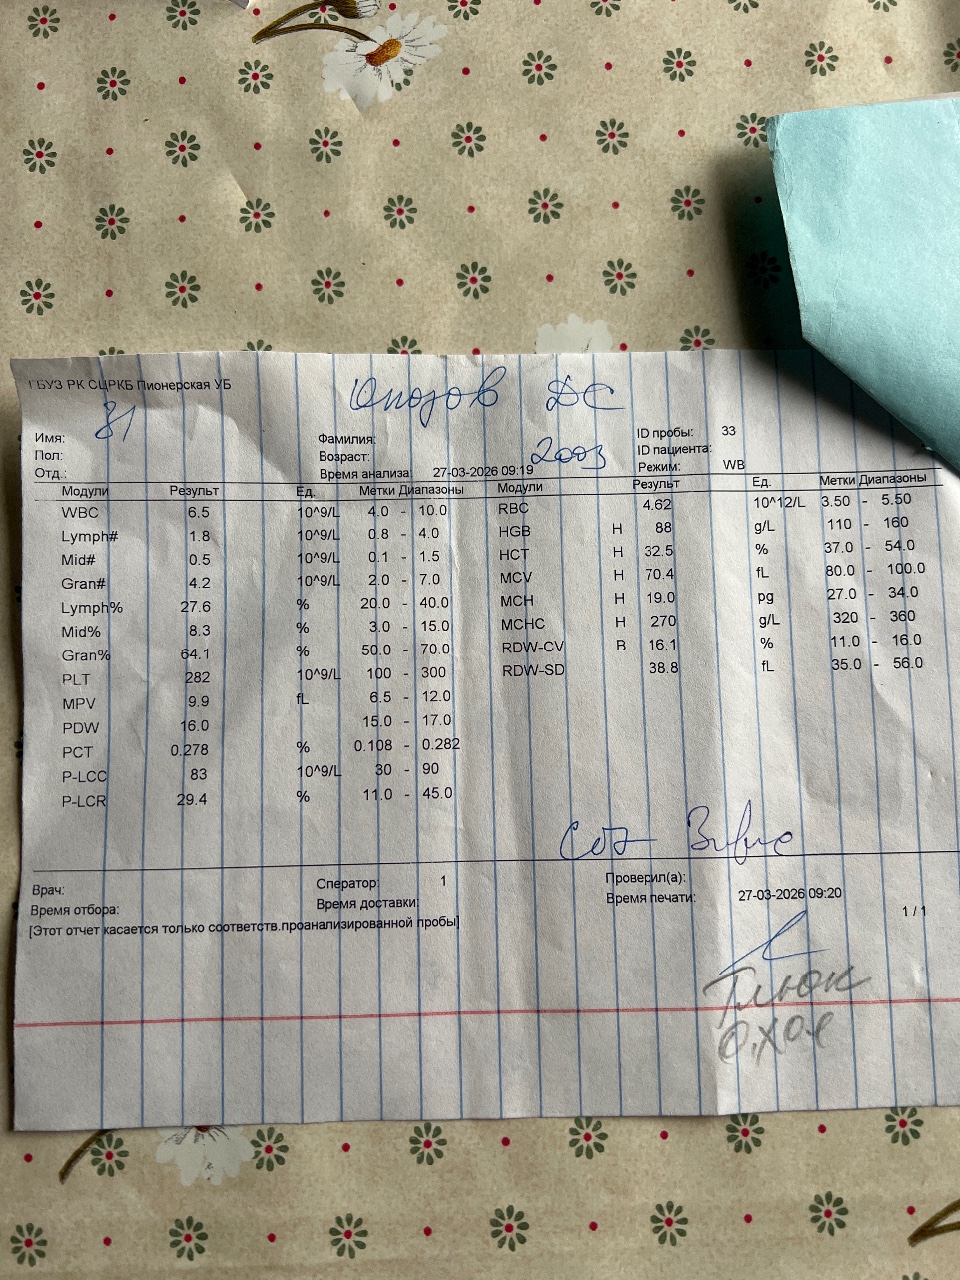 ГБУЗ РК СЦРКБ Пионерская УБ
ДС
81
Имя: Фамилия: ID пробы: 33
Пол: Возраст: 2003 ID пациента:
Отд.: Время анализа: 27-03-2026 09:19 Режим: WB
Модули Результ Ед. Метки Диапазоны Модули Результ Ед. Метки Диапазоны
WBC 6.5 10^9/L 4.0 - 10.0 RBC 4.62 10^12/L 3.50 - 5.50
Lymph# 1.8 10^9/L 0.8 - 4.0 HGB Н 88 g/L 110 - 160
Mid# 0.5 10^9/L 0.1 - 1.5 HCT Н 32.5 % 37.0 - 54.0
Gran# 4.2 10^9/L 2.0 - 7.0 MCV Н 70.4 fL 80.0 - 100.0
Lymph% 27.6 % 20.0 - 40.0 MCH Н 19.0 pg 27.0 - 34.0
Mid% 8.3 % 3.0 - 15.0 MCHC Н 270 g/L 320 - 360
Gran% 64.1 % 50.0 - 70.0 RDW-CV В 16.1 % 11.0 - 16.0
PLT 282 10^9/L 100 - 300 RDW-SD 38.8 fL 35.0 - 56.0
MPV 9.9 fL 6.5 - 12.0
PDW 16.0 15.0 - 17.0
PCT 0.278 % 0.108 - 0.282
P-LCC 83 10^9/L 30 - 90
P-LCR 29.4 % 11.0 - 45.0
Врач: Сператор: 1 Проверил(а):
Время отбора: Время доставки: Время печати: 27-03-2026 09:20
[Этот отчет касается только соответств.проанализированной пробы] 1 / 1